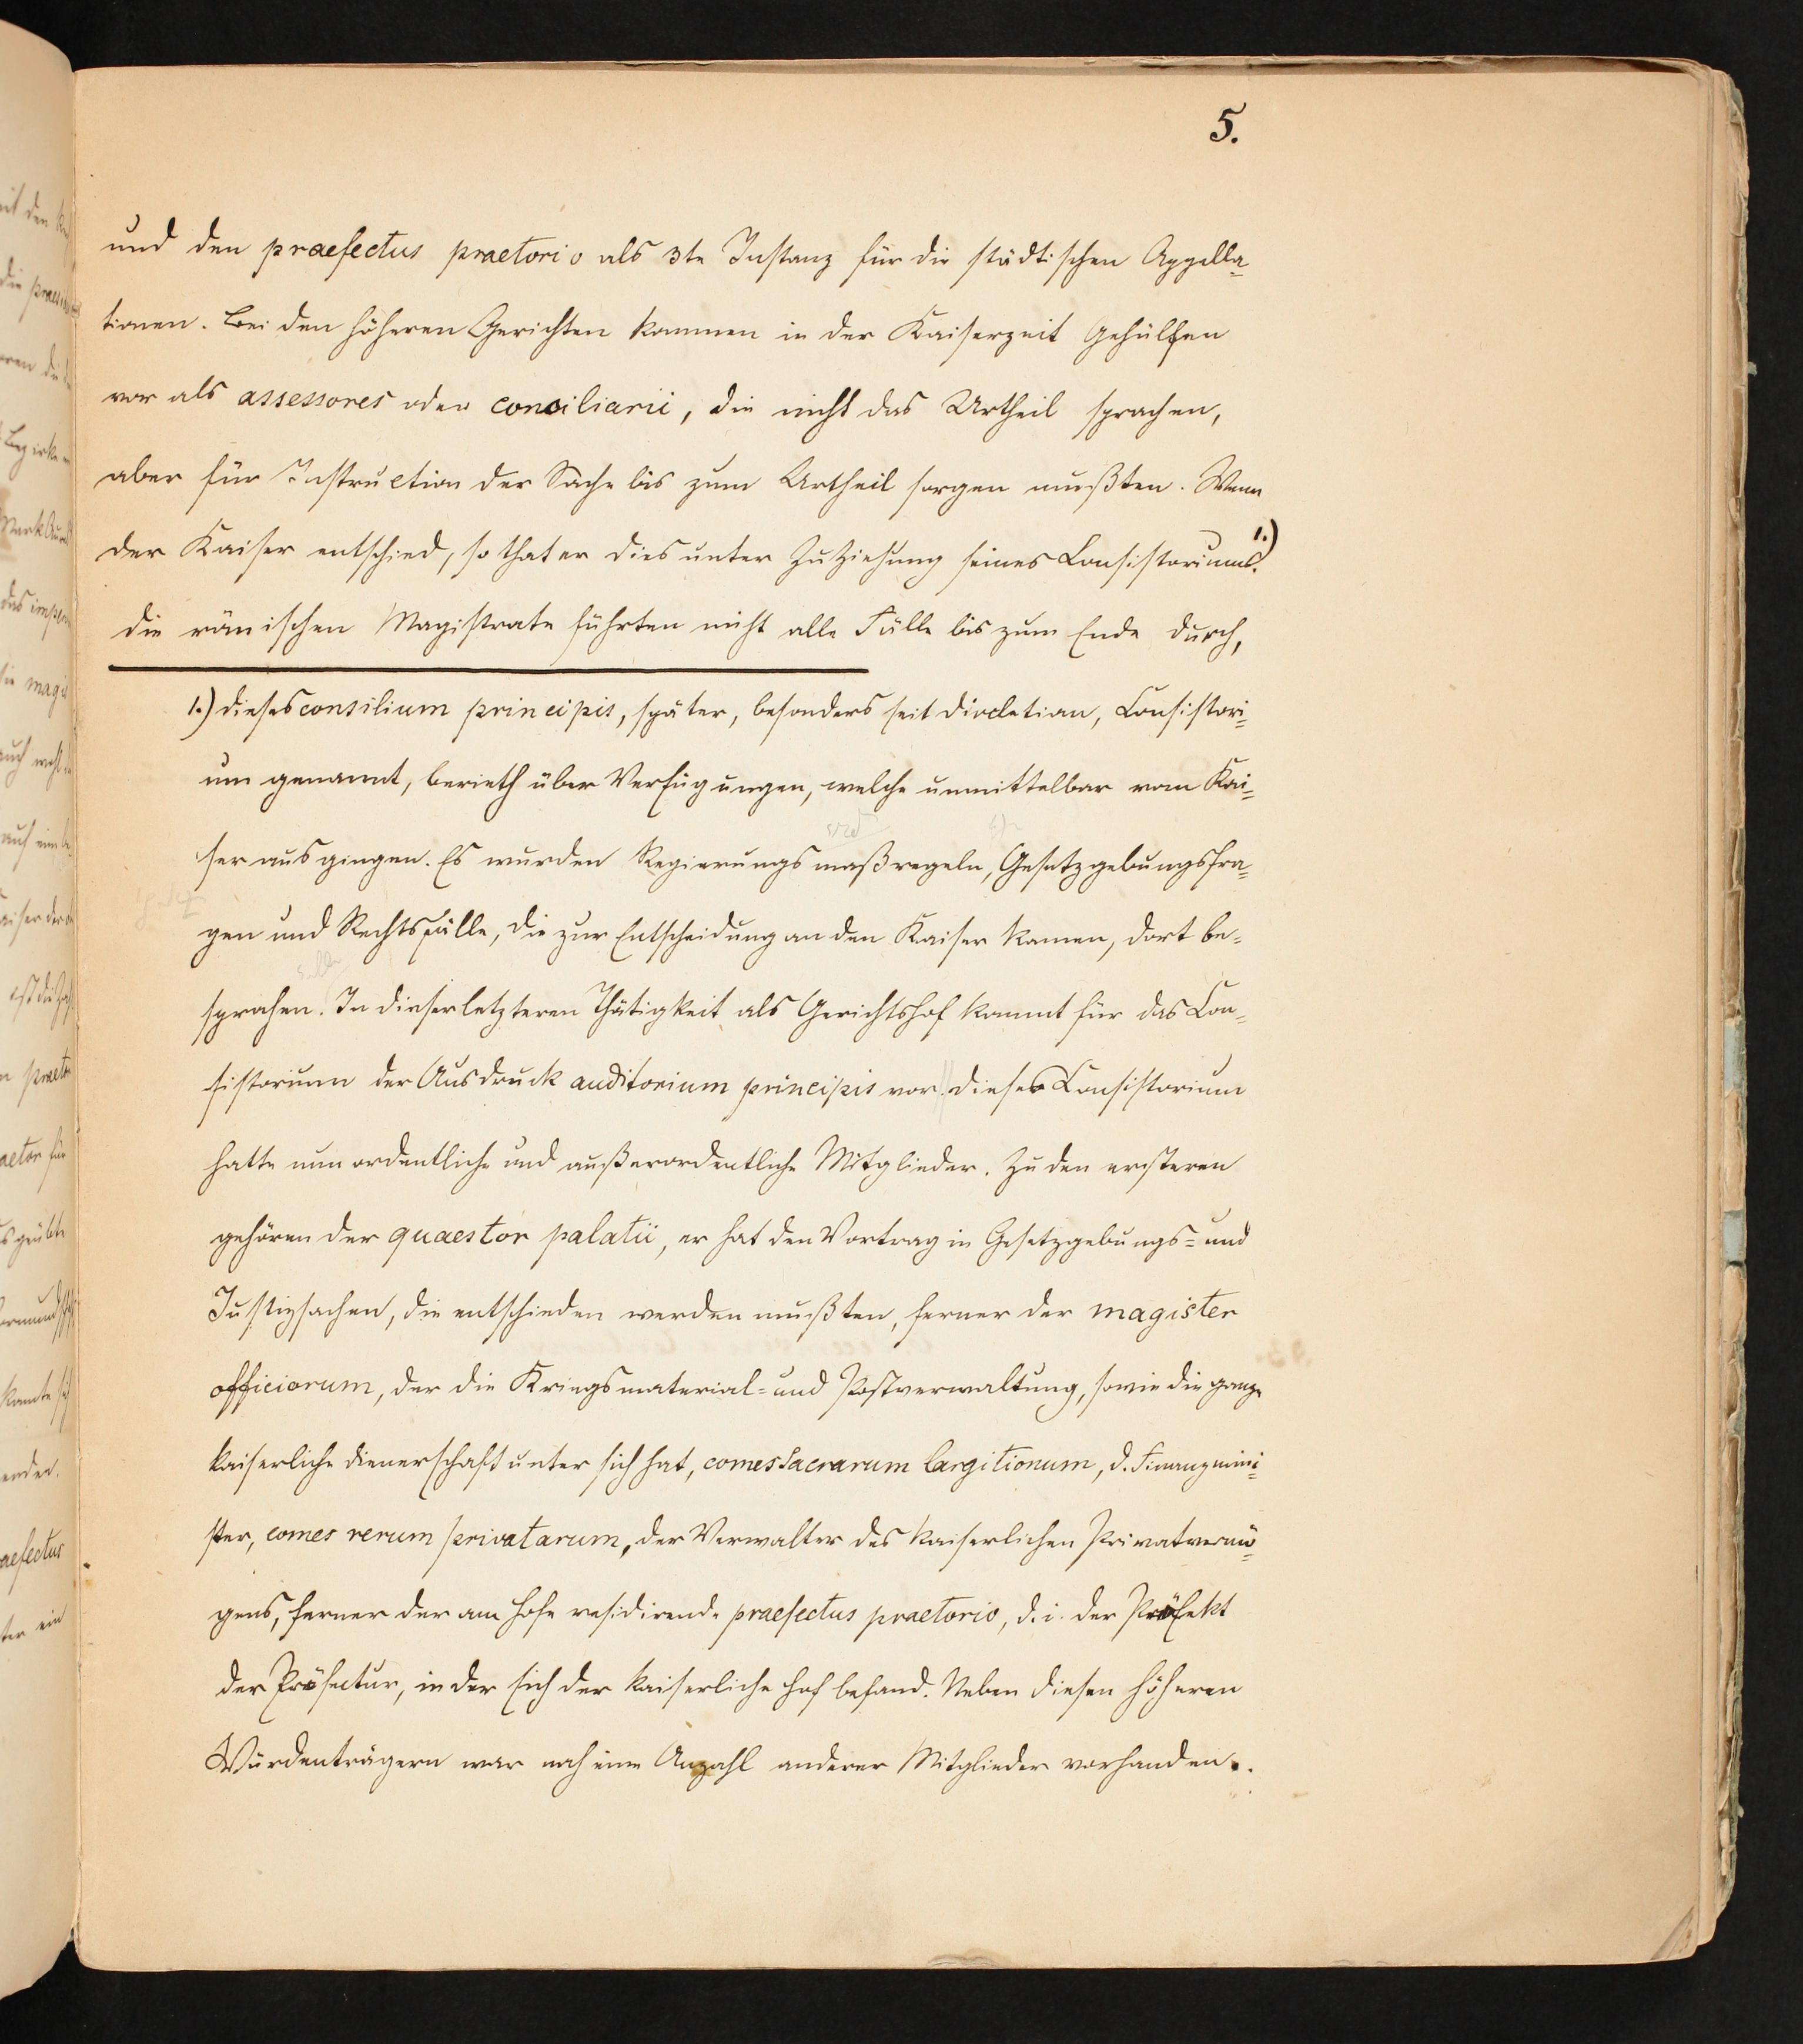 5.
und den praefectus praetorio als 3te Instanz für die städtischen Appella-
tionen. Bei den höheren Gerichten kommen in der Kaiserzeit Gehülfen
vor als assessores oder consiliarii, die nicht das Urtheil sprachen,
aber für Instruction der Sache bis zum Urtheil sorgen mußten. Wenn
der Kaiser entschied, so that er dies unter Zuziehung seines Consistoriums. 1.)
Die römischen Magistrate führten nicht alle Fälle bis zum Ende durch,
1.) Dieses consilium principis, später, besonders seit Diocletian, Consistori-
um genannt, berieth über Verfügungen, welche unmittelbar vom Kai-
ser ausgingen. Es wurden Regierungsmaßregeln, Gesetzgebungsfra-
gen und Rechtsfälle, die zur Entscheidung an den Kaiser kamen, dort be-
sprochen. In dieser letzteren Thätigkeit als Gerichtshof kommt für das Con-
sistorium der Ausdruck auditorium principis vor. Dieses Consistorium
hatte nun ordentliche und außerordentliche Mitglieder. Zu den ersteren
gehören der quaestor palatii, er hat den Vortrag in Gesetzgebungs- und
Justizsachen, die entschieden werden mußten, ferner der magister
officiorum, der die Kriegsmaterial- und Postverwaltung, sowie die ganze
kaiserliche Dienerschaft unter sich hat, comes sacrarum largitionum, d. Finanzmini-
ster, comes rerum privatarum, der Verwalter des kaiserlichen Privatvermö-
gens, ferner der am Hofe residirende praefectus praetorio, d. i. der Präfekt
der Präfectur, in der sich der kaiserliche Hof befand. Neben diesen höheren
Würdenträgern war noch eine Anzahl anderer Mitglieder vorhanden.